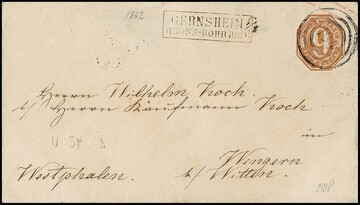 1862
GERNSHEIM
GROSS-ROHRHEIM
9
Herrn Wilhelm Koch.
b/ Herrn Kaufmann Koch
in
Wengern
Westphalen. b/ Witten.
U 34 A